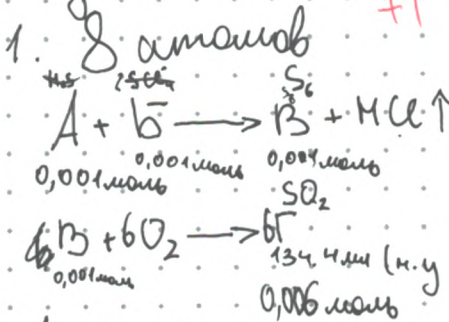 +1
1. 8 атомов
S₆
А + Б ⟶ В + HCl ↑
0,001 моль 0,001 моль 0,001 моль
SO₂
В + 6O₂ ⟶ 6Г
0,001 моль 134,4 мл (н.у
0,006 моль